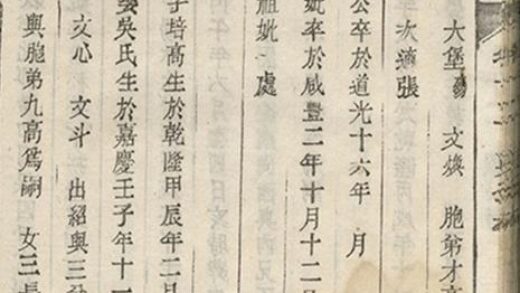 大堡 文煥 胞弟才高
年次適張
公卒於道光十六年 月
妣卒於咸豐二年十月十二
祖妣一處
子培高生於乾隆甲辰年二月
娶吳氏生於嘉慶壬子年十一
文心 文斗 出紹與三
與胞弟九高爲嗣 女三長